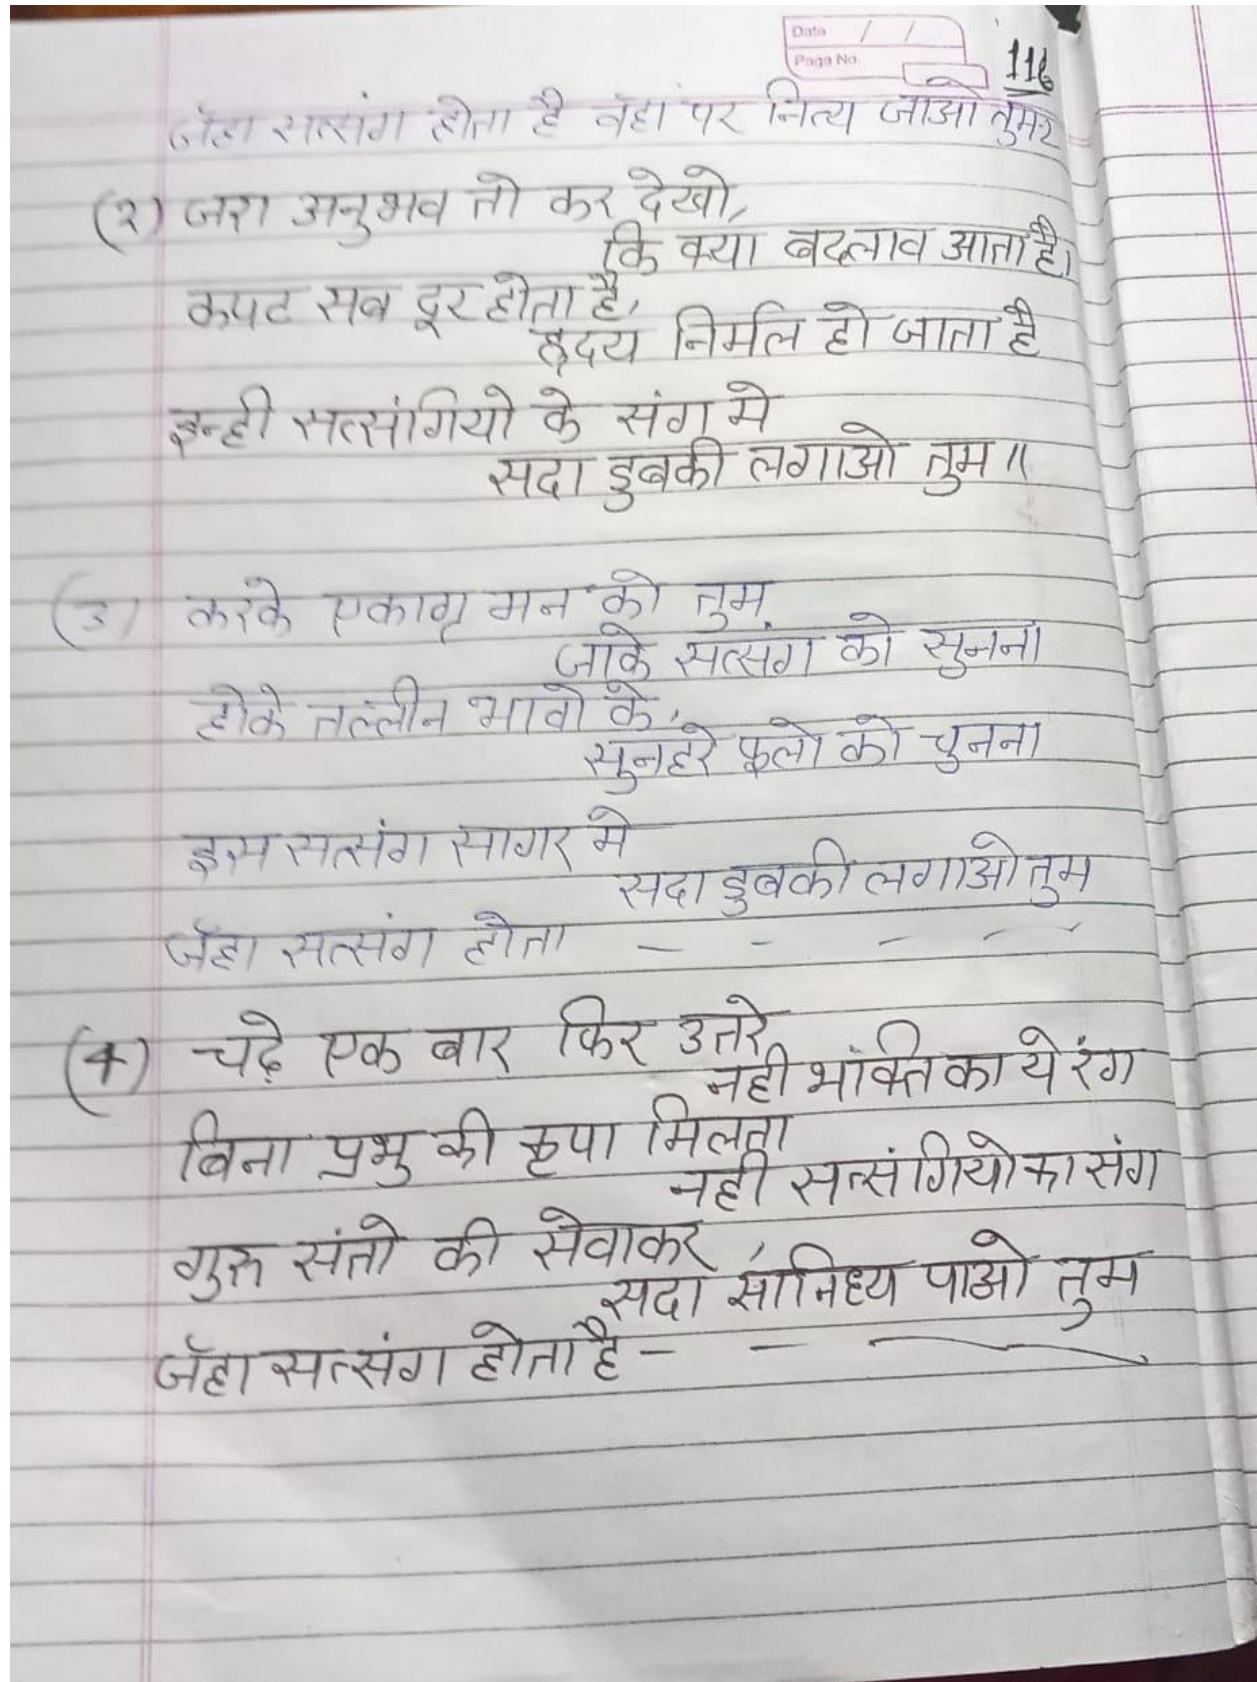 Date / /
Page No.
116
जॅहा सत्संग होता है वॅहा पर नित्य जाओ तुम-2
(२) जरा अनुभव तो कर देखो,
कि क्या बदलाव आता है।
कपट सब दूर होता है,
हृदय निर्मल हो जाता है
इन्ही सत्संगियो के संग मे
सदा डुबकी लगाओ तुम॥
(3) करके एकाग्र मन को तुम,
जाके सत्संग को सुनना
होके तल्लीन भावो के,
सुनहरे फूलो को चुनना
इस सत्संग सागर मे
सदा डुबकी लगाओ तुम
जॅहा सत्संग होता - - - -
(4) चढ़े एक बार फिर उतरे
नही भक्ति का ये रंग
बिना प्रभु की कृपा मिलता
नही सत्संगियो का संग
गुरू संतो की सेवाकर,
सदा सानिध्य पाओ तुम
जॅहा सत्संग होता है - - -